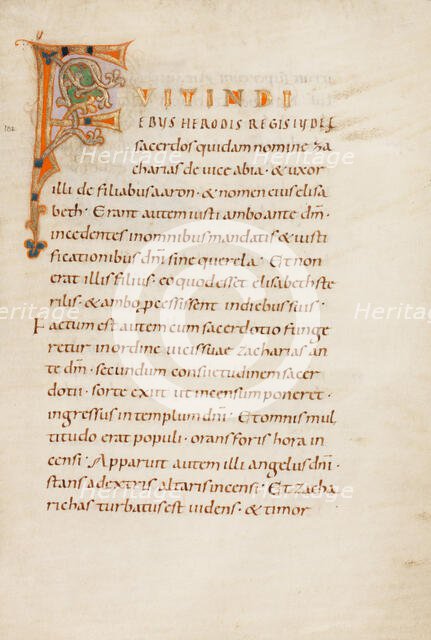 FVITINDI
EBUS HERODIS REGIS IUDEE
sacerdos quidam nomine za
charias de vice abia · & uxor
illi de filiabus aaron · & nomen eius elisa
beth · Erant autem iusti ambo ante dm̄ ·
incedentes in omnibus mandatis & iusti
ficationibus dm̄i sine querela · Et non
erat illis filius · eo quod esset elisabeth ste
rilis · & ambo processissent in diebus suis ·
Factum est autem cum sacerdotio funge
retur in ordine vicis suae zacharias an
te dm̄ · secundum consuetudinem sacer
dotii · sorte exiit ut incensum poneret ·
ingressus in templum dm̄i · Et omnis mul
titudo erat populi · orans foris hora in
censi · Apparuit autem illi angelus dm̄i ·
stans a dextris altaris incensi · Et zacha
richas turbatus est videns · & timor
Heritage
Heritage
Heritage
Heritage
Heritage
Heritage
Heritage
Heritage